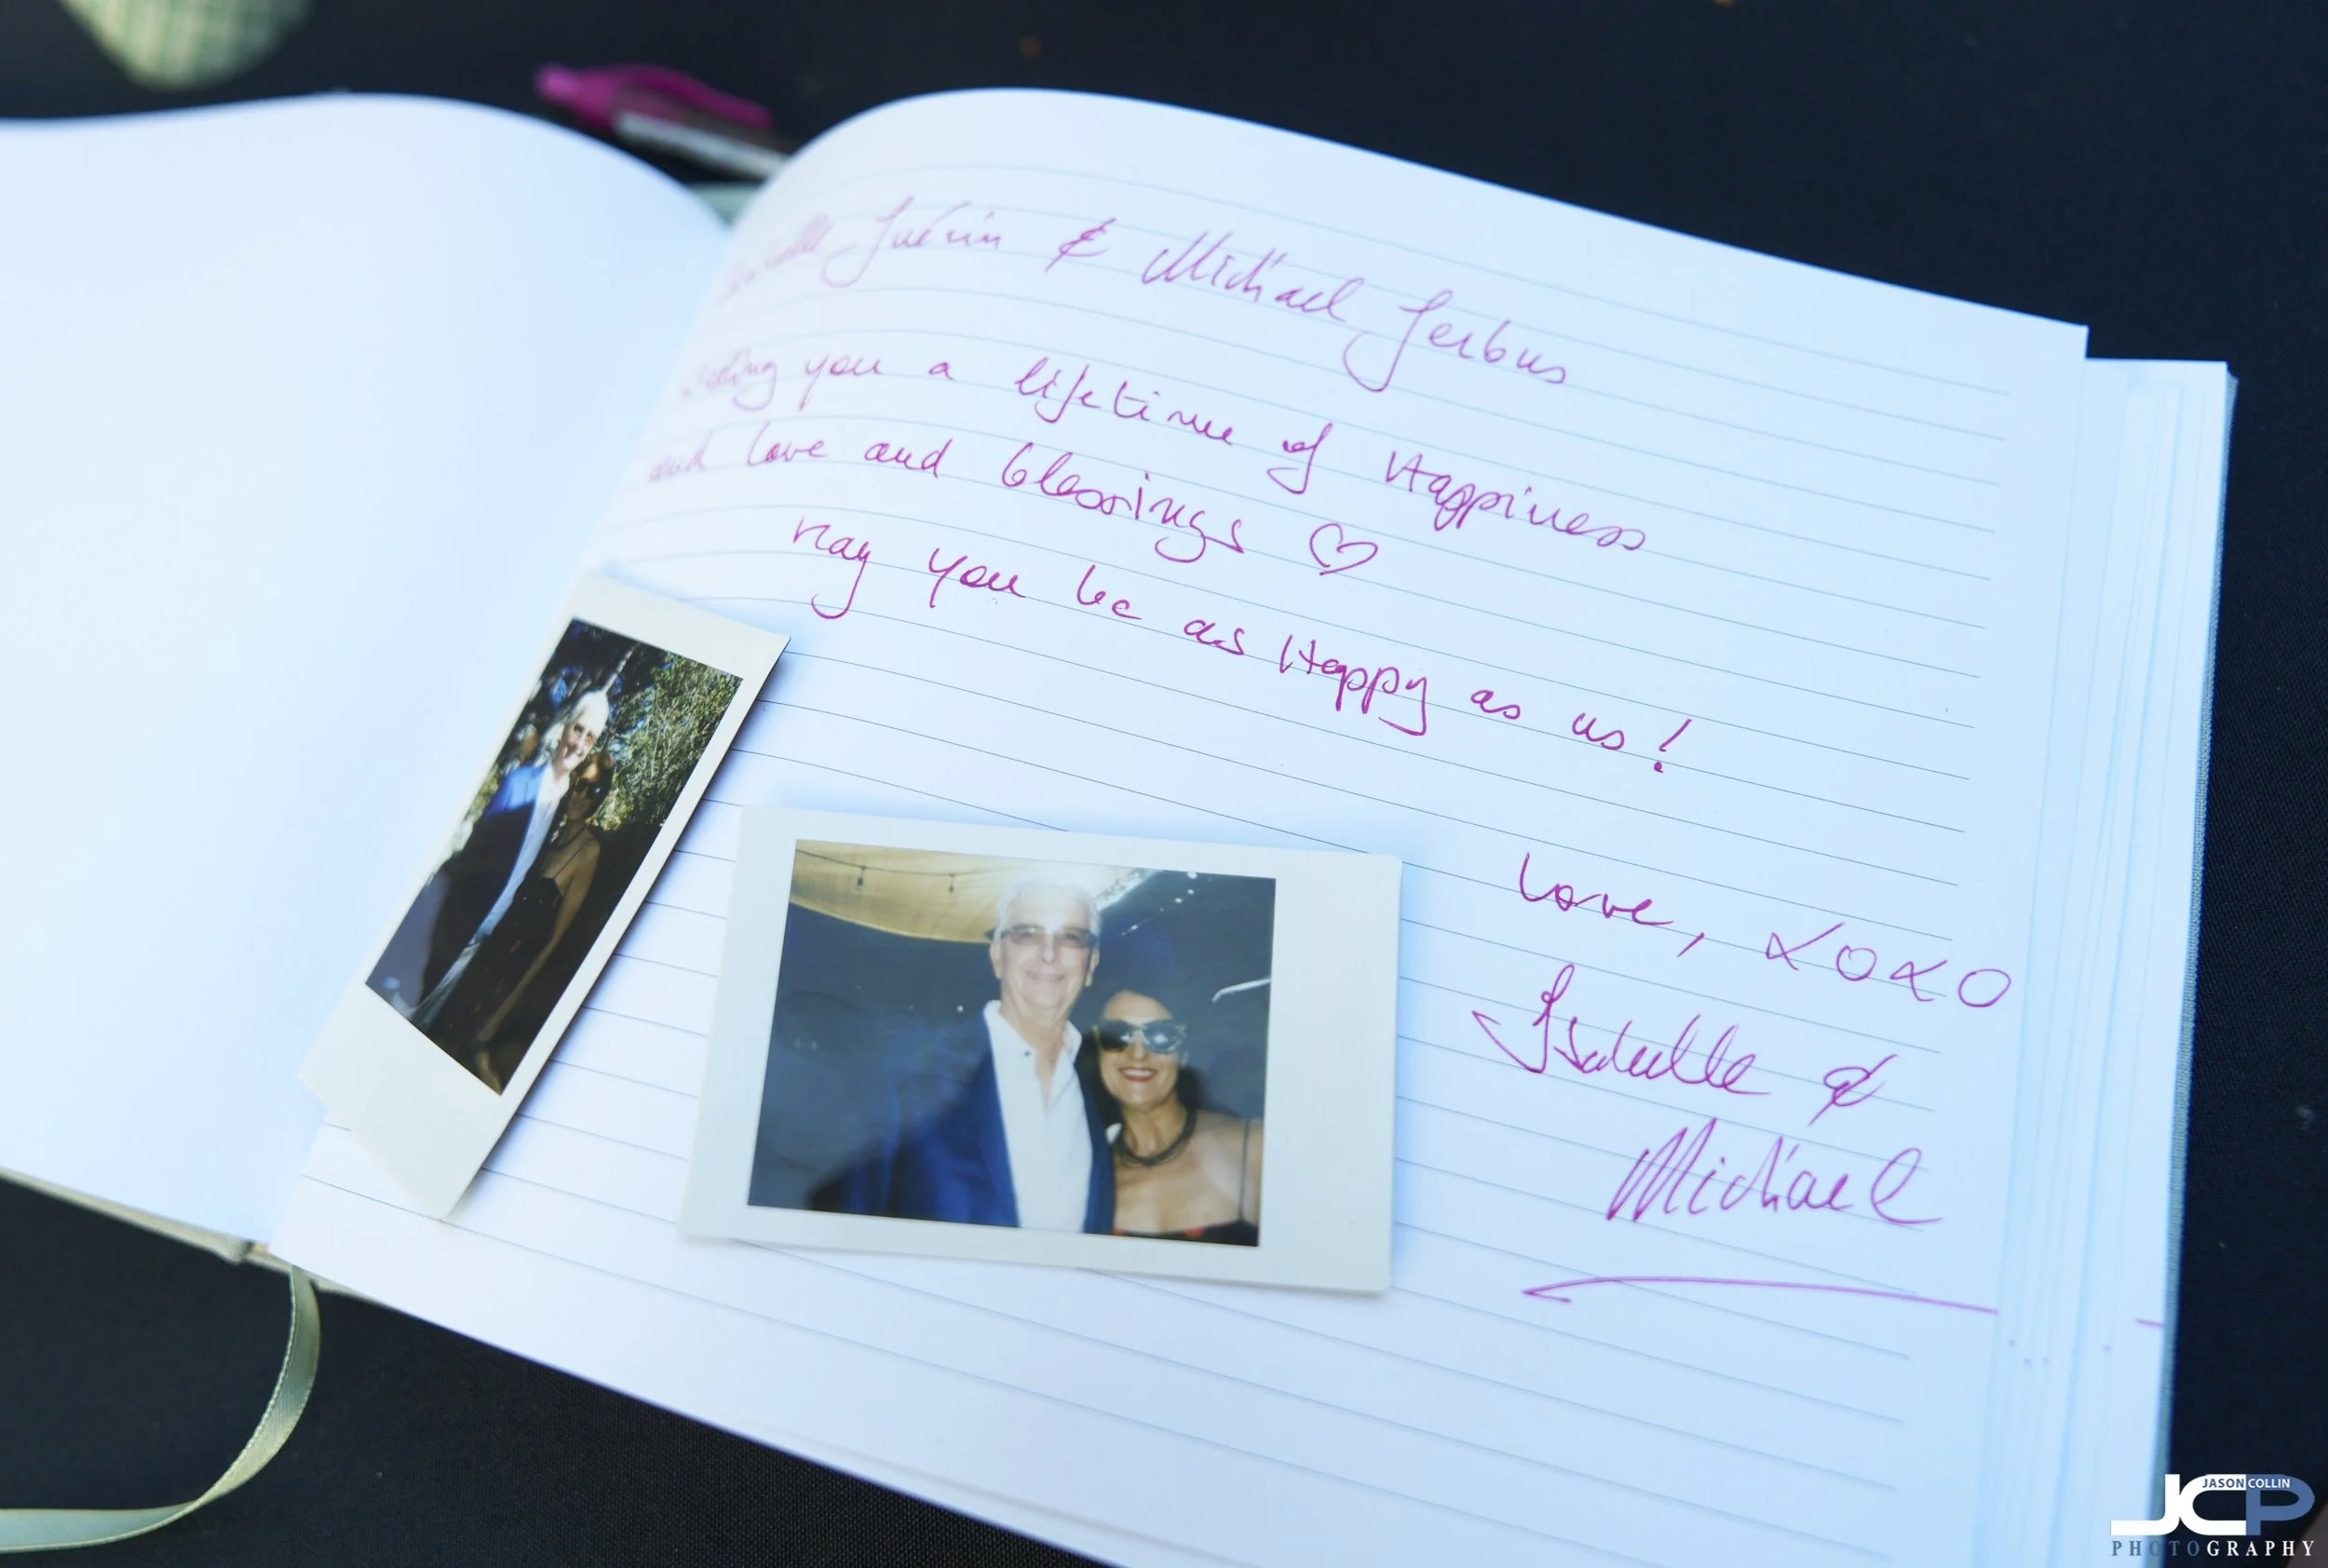 Guérin & Michael Gerbus
you a lifetime of Happiness
and love and blessings ♡
May you be as Happy as us!
Love, XOXO
Isabelle &
Michael
JCP
JASON COLLIN
PHOTOGRAPHY